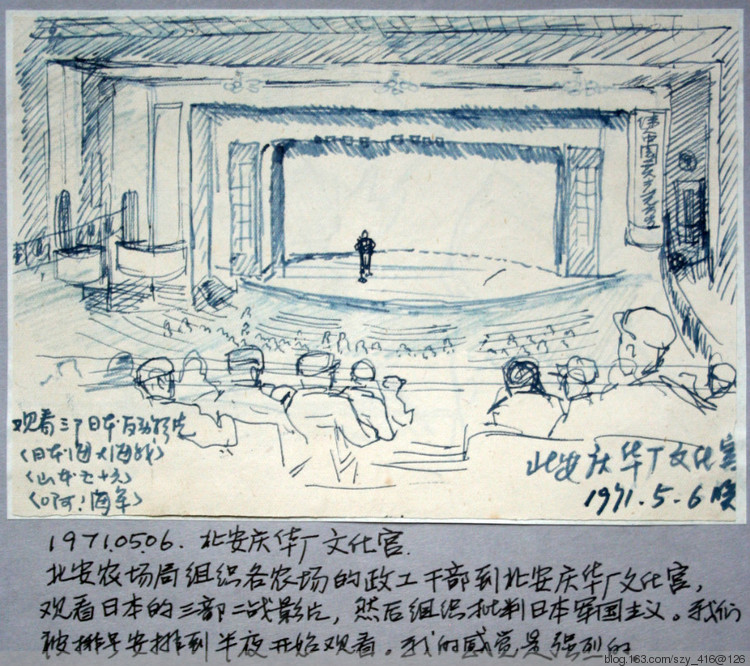 观看三部日本反动影片
《日本海大海战》
《山本五十六》
《啊!海军》
北安庆华厂文化宫
1971.5.6晚
1971.05.06. 北安庆华厂文化宫.
北安农场局组织各农场的政工干部到北安庆华厂文化宫,
观看日本的三部二战影片,然后组织批判日本军国主义。我们
被排号安排到半夜开始观看。我的感觉是强烈的
blog.163.com/szy_416@126